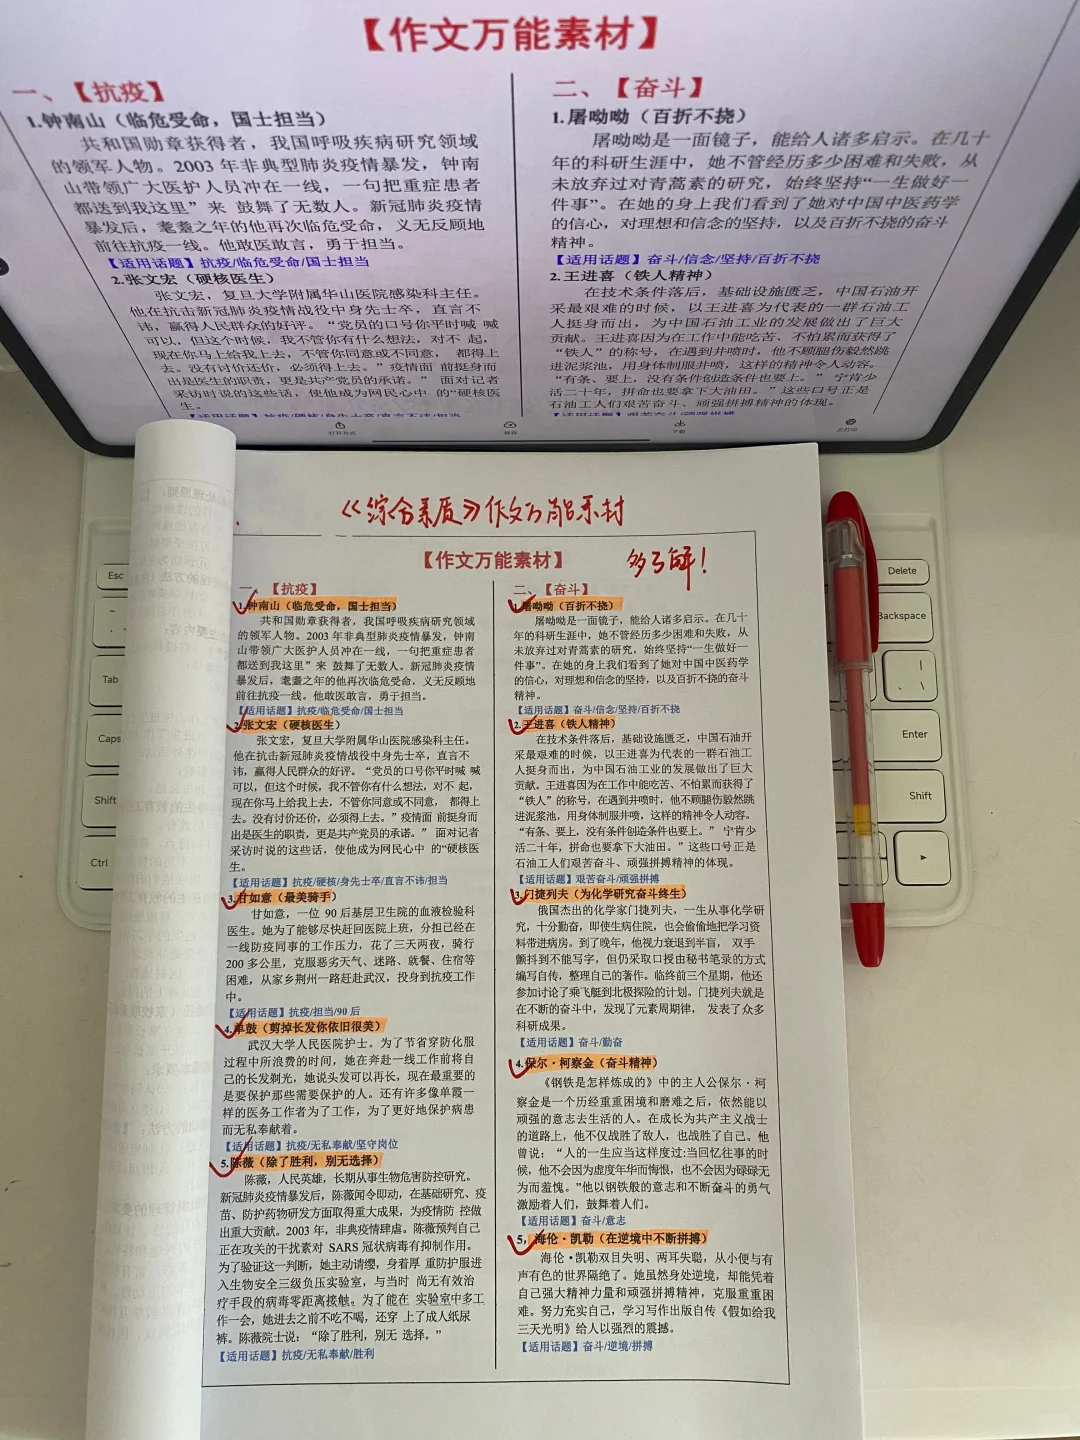 【作文万能素材】
一、【抗疫】
1.钟南山（临危受命，国士担当）
共和国勋章获得者，我国呼吸疾病研究领域
的领军人物。2003 年非典型肺炎疫情暴发，钟南
山带领广大医护人员冲在一线，一句把重症患者
都送到我这里”来 鼓舞了无数人。新冠肺炎疫情
暴发后，耄耋之年的他再次临危受命，义无反顾地
前往抗疫一线。他敢医敢言，勇于担当。
【适用话题】抗疫/临危受命/国士担当
2.张文宏（硬核医生）
张文宏，复旦大学附属华山医院感染科主任。
他在抗击新冠肺炎疫情战役中身先士卒，直言不
讳，赢得人民群众的好评。“党员的口号你平时喊 喊
可以，但这个时候，我不管你有什么想法，对不 起，
现在你马上给我上去，不管你同意或不同意， 都得上
去。没有讨价还价，必须得上去。”疫情面 前挺身而
出是医生的职责，更是共产党员的承诺。” 面对记者
采访时说的这些话，使他成为网民心中 的“硬核医
生。
【适用话题】抗疫/硬核/身先士卒/直言不讳/担当
二、【奋斗】
1.屠呦呦（百折不挠）
屠呦呦是一面镜子，能给人诸多启示。在几十
年的科研生涯中，她不管经历多少困难和失败，从
未放弃过对青蒿素的研究，始终坚持“一生做好一
件事”。在她的身上我们看到了她对中国中医药学
的信心，对理想和信念的坚持，以及百折不挠的奋斗
精神。
【适用话题】奋斗/信念/坚持/百折不挠
2.王进喜（铁人精神）
在技术条件落后，基础设施匮乏，中国石油开
采最艰难的时候，以王进喜为代表的一群石油工
人挺身而出，为中国石油工业的发展做出了巨大
贡献。王进喜因为在工作中能吃苦、不怕累而获得了
“铁人”的称号，在遇到井喷时，他不顾腿伤毅然跳
进泥浆池，用身体制服井喷，这样的精神令人动容。
“有条、要上，没有条件创造条件也要上。” 宁肯少
活二十年，拼命也要拿下大油田。”这些口号正是
石油工人们艰苦奋斗、顽强拼搏精神的体现。
【适用话题】艰苦奋斗/顽强拼搏
打开方式
下载
《综合素质》作文万能素材
【作文万能素材】
多了解！
一、【抗疫】
1.钟南山（临危受命，国士担当）
共和国勋章获得者，我国呼吸疾病研究领域
的领军人物。2003 年非典型肺炎疫情暴发，钟南
山带领广大医护人员冲在一线，一句把重症患者
都送到我这里”来 鼓舞了无数人。新冠肺炎疫情
暴发后，耄耋之年的他再次临危受命，义无反顾地
前往抗疫一线。他敢医敢言，勇于担当。
【适用话题】抗疫/临危受命/国士担当
2.张文宏（硬核医生）
张文宏，复旦大学附属华山医院感染科主任。
他在抗击新冠肺炎疫情战役中身先士卒，直言不
讳，赢得人民群众的好评。“党员的口号你平时喊 喊
可以，但这个时候，我不管你有什么想法，对不 起，
现在你马上给我上去，不管你同意或不同意， 都得上
去。没有讨价还价，必须得上去。”疫情面 前挺身而
出是医生的职责，更是共产党员的承诺。” 面对记者
采访时说的这些话，使他成为网民心中 的“硬核医
生。
【适用话题】抗疫/硬核/身先士卒/直言不讳/担当
3.甘如意（最美骑手）
甘如意，一位 90 后基层卫生院的血液检验科
医生。她为了能够尽快赶回医院上班，分担已经在
一线防疫同事的工作压力，花了三天两夜，骑行
200 多公里，克服恶劣天气、迷路、就餐、住宿等
困难，从家乡荆州一路赶赴武汉，投身到抗疫工作
中。
【适用话题】抗疫/担当/90 后
4.单鼓（剪掉长发你依旧很美）
武汉大学人民医院护士。为了节省穿防化服
过程中所浪费的时间，她在奔赴一线工作前将自
己的长发剃光，她说头发可以再长，现在最重要的
是要保护那些需要保护的人。还有许多像单霞一
样的医务工作者为了工作，为了更好地保护病患
而无私奉献着。
【适用话题】抗疫/无私奉献/坚守岗位
5.陈薇（除了胜利，别无选择）
陈薇，人民英雄，长期从事生物危害防控研究。
新冠肺炎疫情暴发后，陈薇闻令即动，在基础研究、疫
苗、防护药物研发方面取得重大成果，为疫情防 控做
出重大贡献。2003 年，非典疫情肆虐。陈薇预判自己
正在攻关的干扰素对 SARS 冠状病毒有抑制作用。
为了验证这一判断，她主动请缨，身着厚 重防护服进
入生物安全三级负压实验室，与当时 尚无有效治
疗手段的病毒零距离接触。为了能在 实验室中多工
作一会，她进去之前不吃不喝，还穿 上了成人纸尿
裤。陈薇院士说：“除了胜利，别无 选择。”
【适用话题】抗疫/无私奉献/胜利
二、【奋斗】
1.屠呦呦（百折不挠）
屠呦呦是一面镜子，能给人诸多启示。在几十
年的科研生涯中，她不管经历多少困难和失败，从
未放弃过对青蒿素的研究，始终坚持“一生做好一
件事”。在她的身上我们看到了她对中国中医药学
的信心，对理想和信念的坚持，以及百折不挠的奋斗
精神。
【适用话题】奋斗/信念/坚持/百折不挠
2.王进喜（铁人精神）
在技术条件落后，基础设施匮乏，中国石油开
采最艰难的时候，以王进喜为代表的一群石油工
人挺身而出，为中国石油工业的发展做出了巨大
贡献。王进喜因为在工作中能吃苦、不怕累而获得了
“铁人”的称号，在遇到井喷时，他不顾腿伤毅然跳
进泥浆池，用身体制服井喷，这样的精神令人动容。
“有条、要上，没有条件创造条件也要上。” 宁肯少
活二十年，拼命也要拿下大油田。”这些口号正是
石油工人们艰苦奋斗、顽强拼搏精神的体现。
【适用话题】艰苦奋斗/顽强拼搏
3.门捷列夫（为化学研究奋斗终生）
俄国杰出的化学家门捷列夫，一生从事化学研
究，十分勤奋，即使生病住院，也会偷偷地把学习资
料带进病房。到了晚年，他视力衰退到半盲， 双手
颤抖到不能写字，但仍采取口授由秘书笔录的方式
编写自传，整理自己的著作。临终前三个星期，他还
参加讨论了乘飞艇到北极探险的计划。门捷列夫就是
在不断的奋斗中，发现了元素周期律， 发表了众多
科研成果。
【适用话题】奋斗/勤奋
4.保尔·柯察金（奋斗精神）
《钢铁是怎样炼成的》中的主人公保尔·柯
察金是一个历经重重困境和磨难之后，依然能以
顽强的意志去生活的人。在成长为共产主义战士
的道路上，他不仅战胜了敌人，也战胜了自己。他
曾说：“人的一生应当这样度过:当回忆往事的时
候，他不会因为虚度年华而悔恨，也不会因为碌碌无
为而羞愧。”他以钢铁般的意志和不断奋斗的勇气
激励着人们，鼓舞着人们。
【适用话题】奋斗/意志
5，海伦·凯勒（在逆境中不断拼搏）
海伦·凯勒双目失明、两耳失聪，从小便与有
声有色的世界隔绝了。她虽然身处逆境，却能凭着
自己强大精神力量和顽强拼搏精神，克服重重困
难。努力充实自己，学习写作出版自传《假如给我
三天光明》给人以强烈的震撼。
【适用话题】奋斗/逆境/拼搏
Esc
Tab
Caps
Shift
Ctrl
Delete
Backspace
Enter
Shift